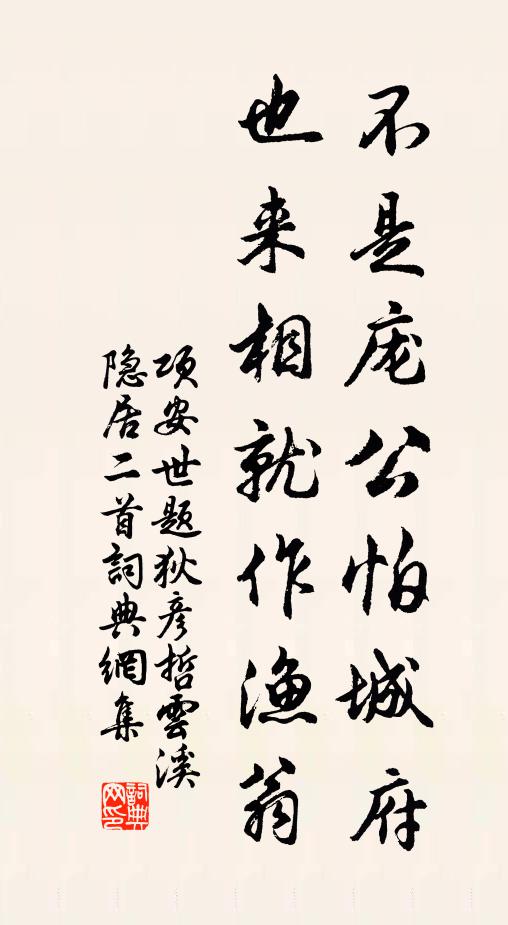 不是庞公怕城府
也来相就作渔翁
项安世题狄彦哲雲溪
隐居二首詞典網集
詞典网印